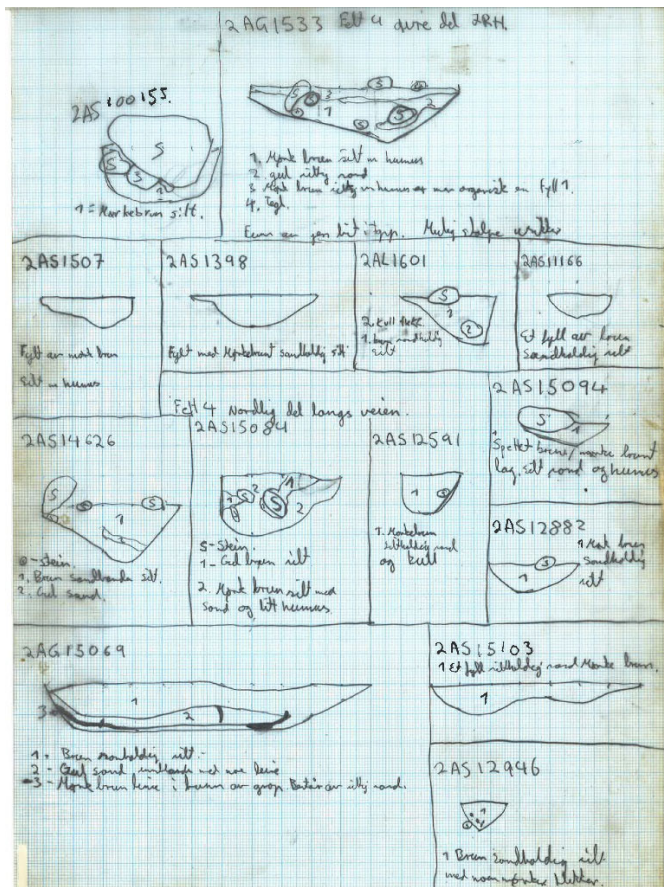 2AG1533 Felt 4 øvre del 2RH.
2AS100155.
S
S
3
1
1 = Mørkebrun silt.
S
3
S
1
S
S
2
1. Mørk brun silt m humus
2 gul siltig sand
3 Mørk brun siltig m humus er mer organisk en fyll 1.
4. Tegl.
Funn av jern bit i topp. Mulig stolpe
2AS1507
Fylt av mørk brun
Silt m humus
2AS1398
Fylt med Mørkebrunt sandholdig silt
2AL1601
S
1
2
2. Kull flekk
1. brun sandholdig
silt
2AS11166
Et fyll av brun
Sandholdig silt
Felt 4 Nordlig del langs veien.
2AS14626
S
S
1
- stein.
1. Brun sandblanda silt.
2. Gul sand.
2AS15084
1
S
2
1
S
2
S - Stein.
1 - Gul brun silt
2. Mørk brun silt med
sand og litt humus
2AS12591
1
1. Mørkebrun
siltholdig sand
og kull
2AS15094
S
1
Spettet brun/mørke brunt
lag, silt sand og humus
2AS12882
S
1
1 Mørk brun
sandholdig
silt
2AG15069
1
2
3
1 - Brun sandholdig silt.
2 - Gul sand innblanda med noe leire
3 - Mørk brun leire i bunn av grop. Består av siltig sand.
2AS15103
1 Et fyll siltholdig sand Mørke brun.
1
2AS12946
1
1 Brun sandholdig silt
med noen mørke flekker.